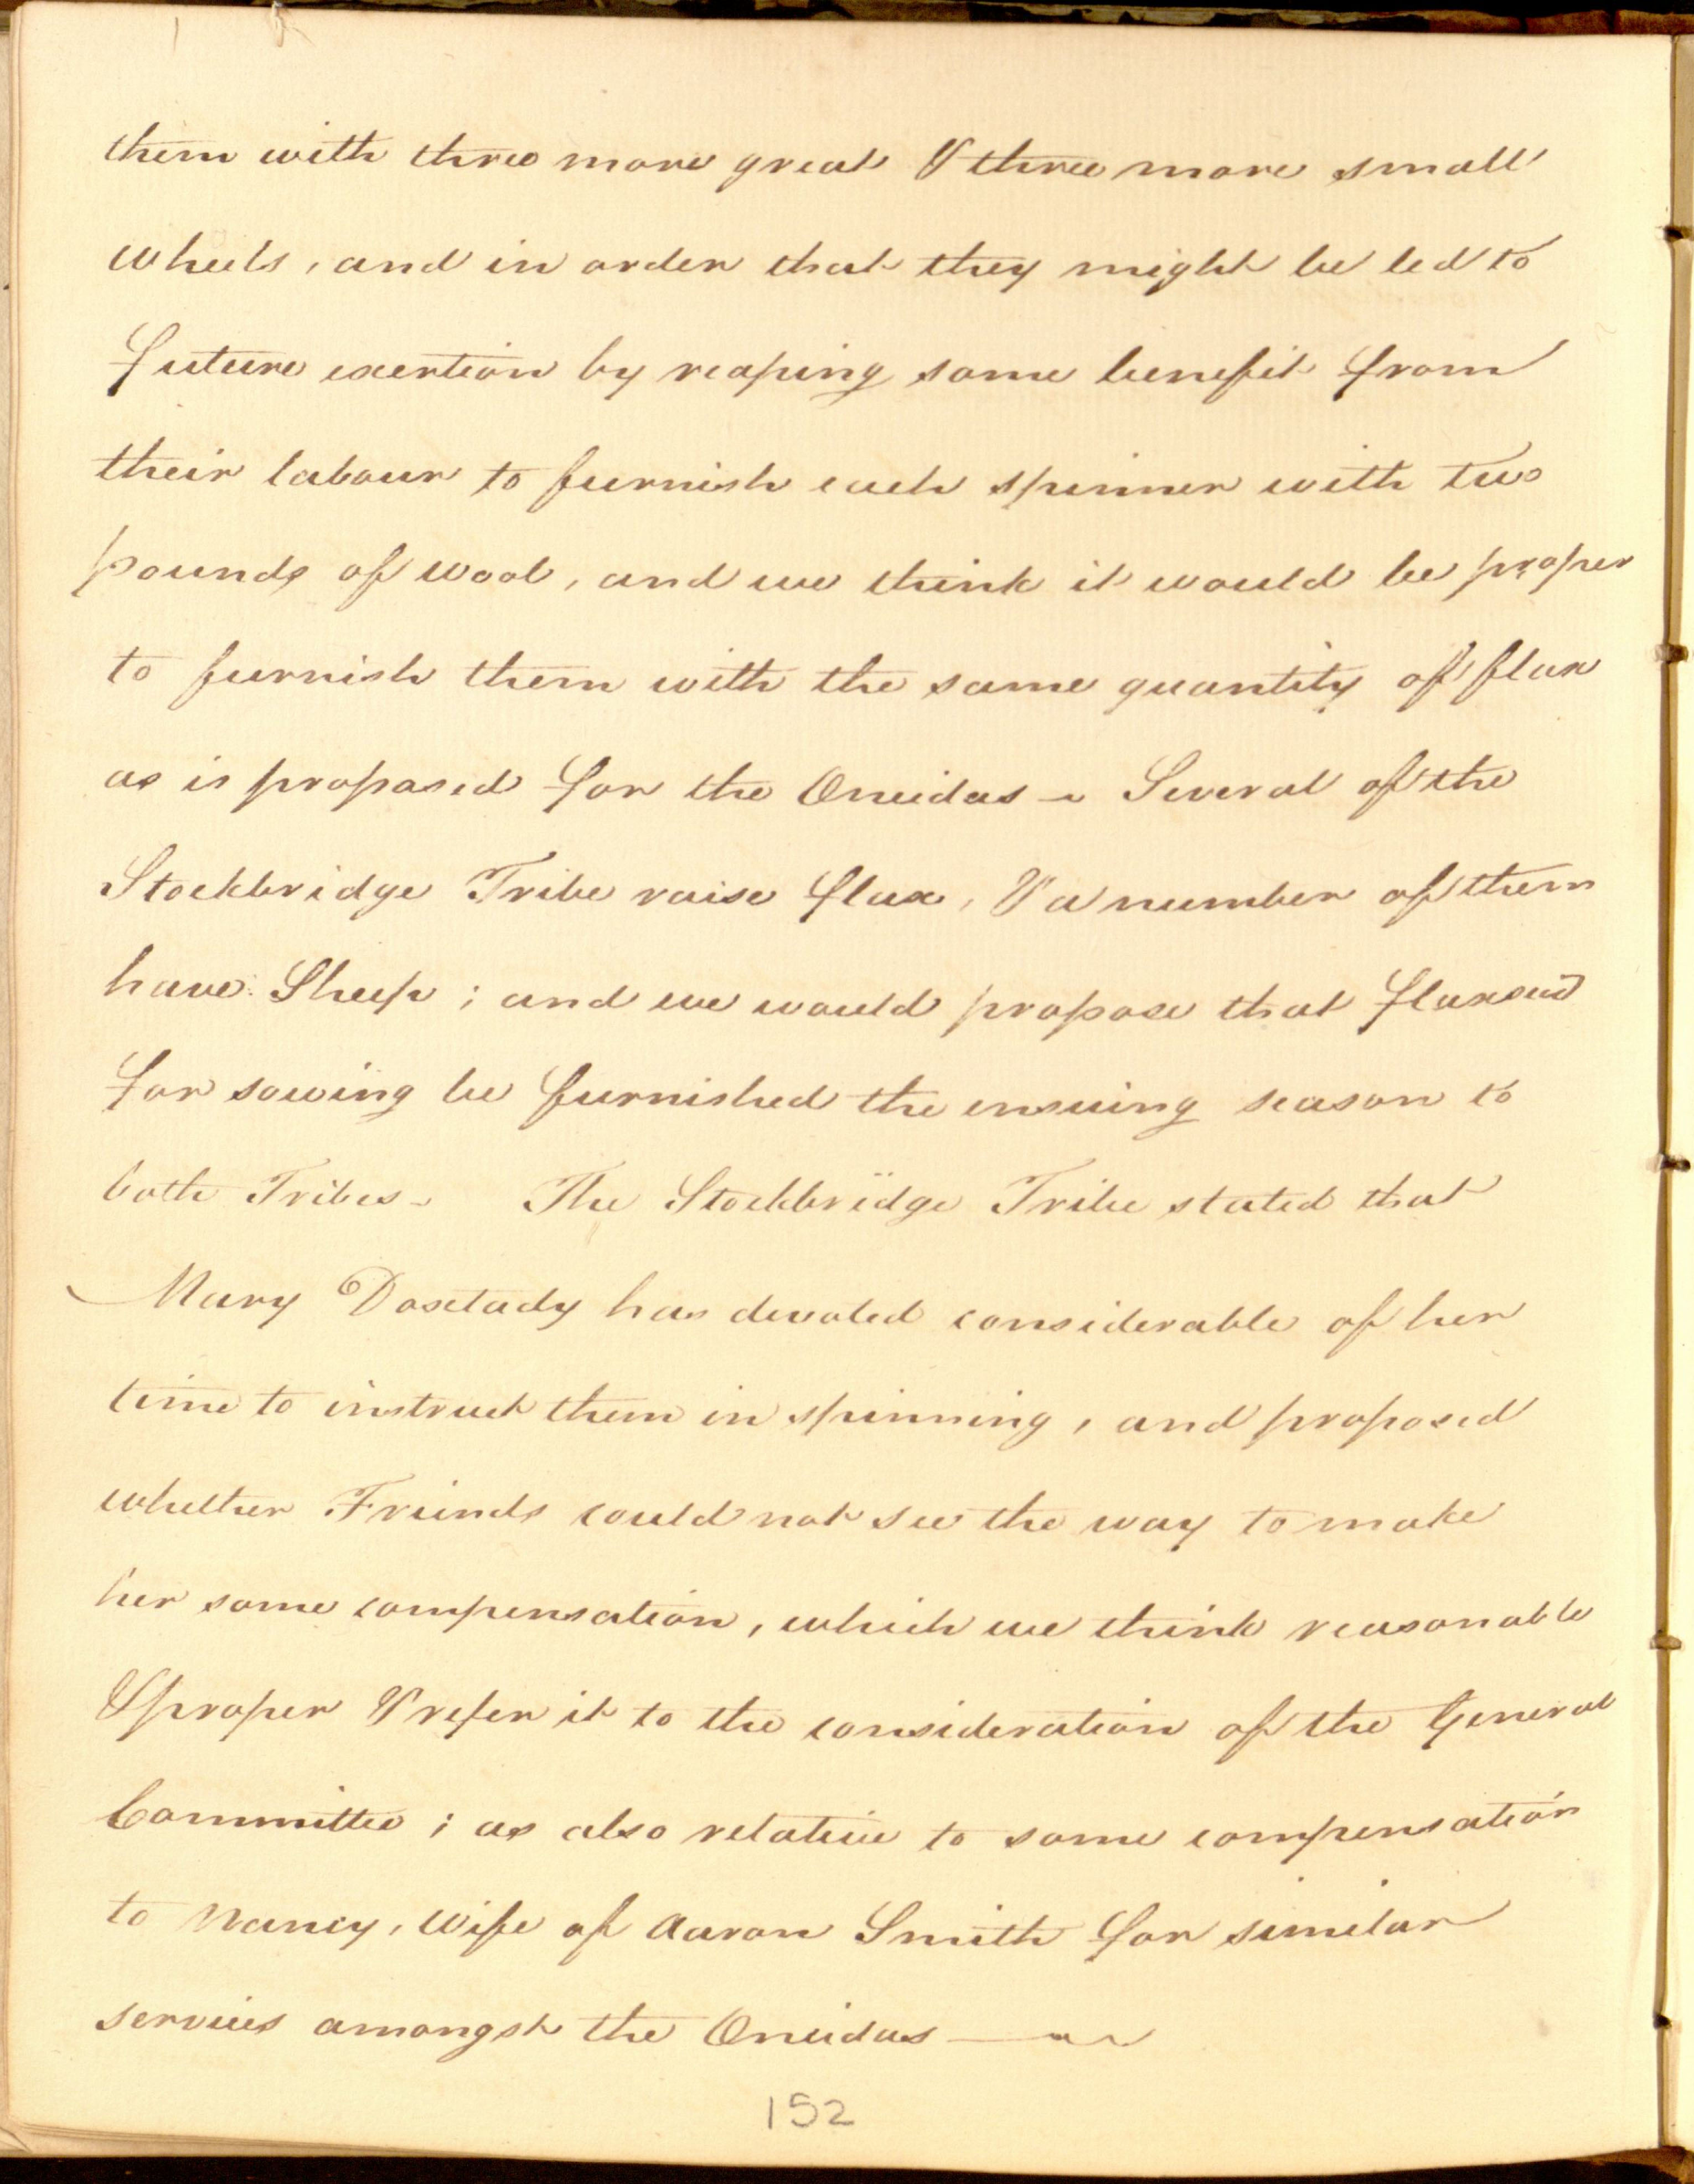 them with three more great & three more small
wheels, and in order that they might be led to
future exertion by reaping some benefit from
their labour to furnish each spinner with two
pounds of wool, and we think it would be proper
to furnish them with the same quantity of flax
as is proposed for the Oneidas - Several of the
Stockbridge Tribe raise flax, & a number of them
have Sheep; and we would propose that flaxseed
for sowing be furnished the ensuing season to
both Tribes - The Stockbridge Tribe stated that
Mary Doxtady has devoted considerable of her
time to instruct them in spinning, and proposed
whether Friends could not see the way to make
her some compensation, which we think reasonable
& proper & refer it to the consideration of the General
Committee; as also relative to some compensation
to Nancy, Wife of Aaron Smith for similar
services amongst the Oneidas —
152